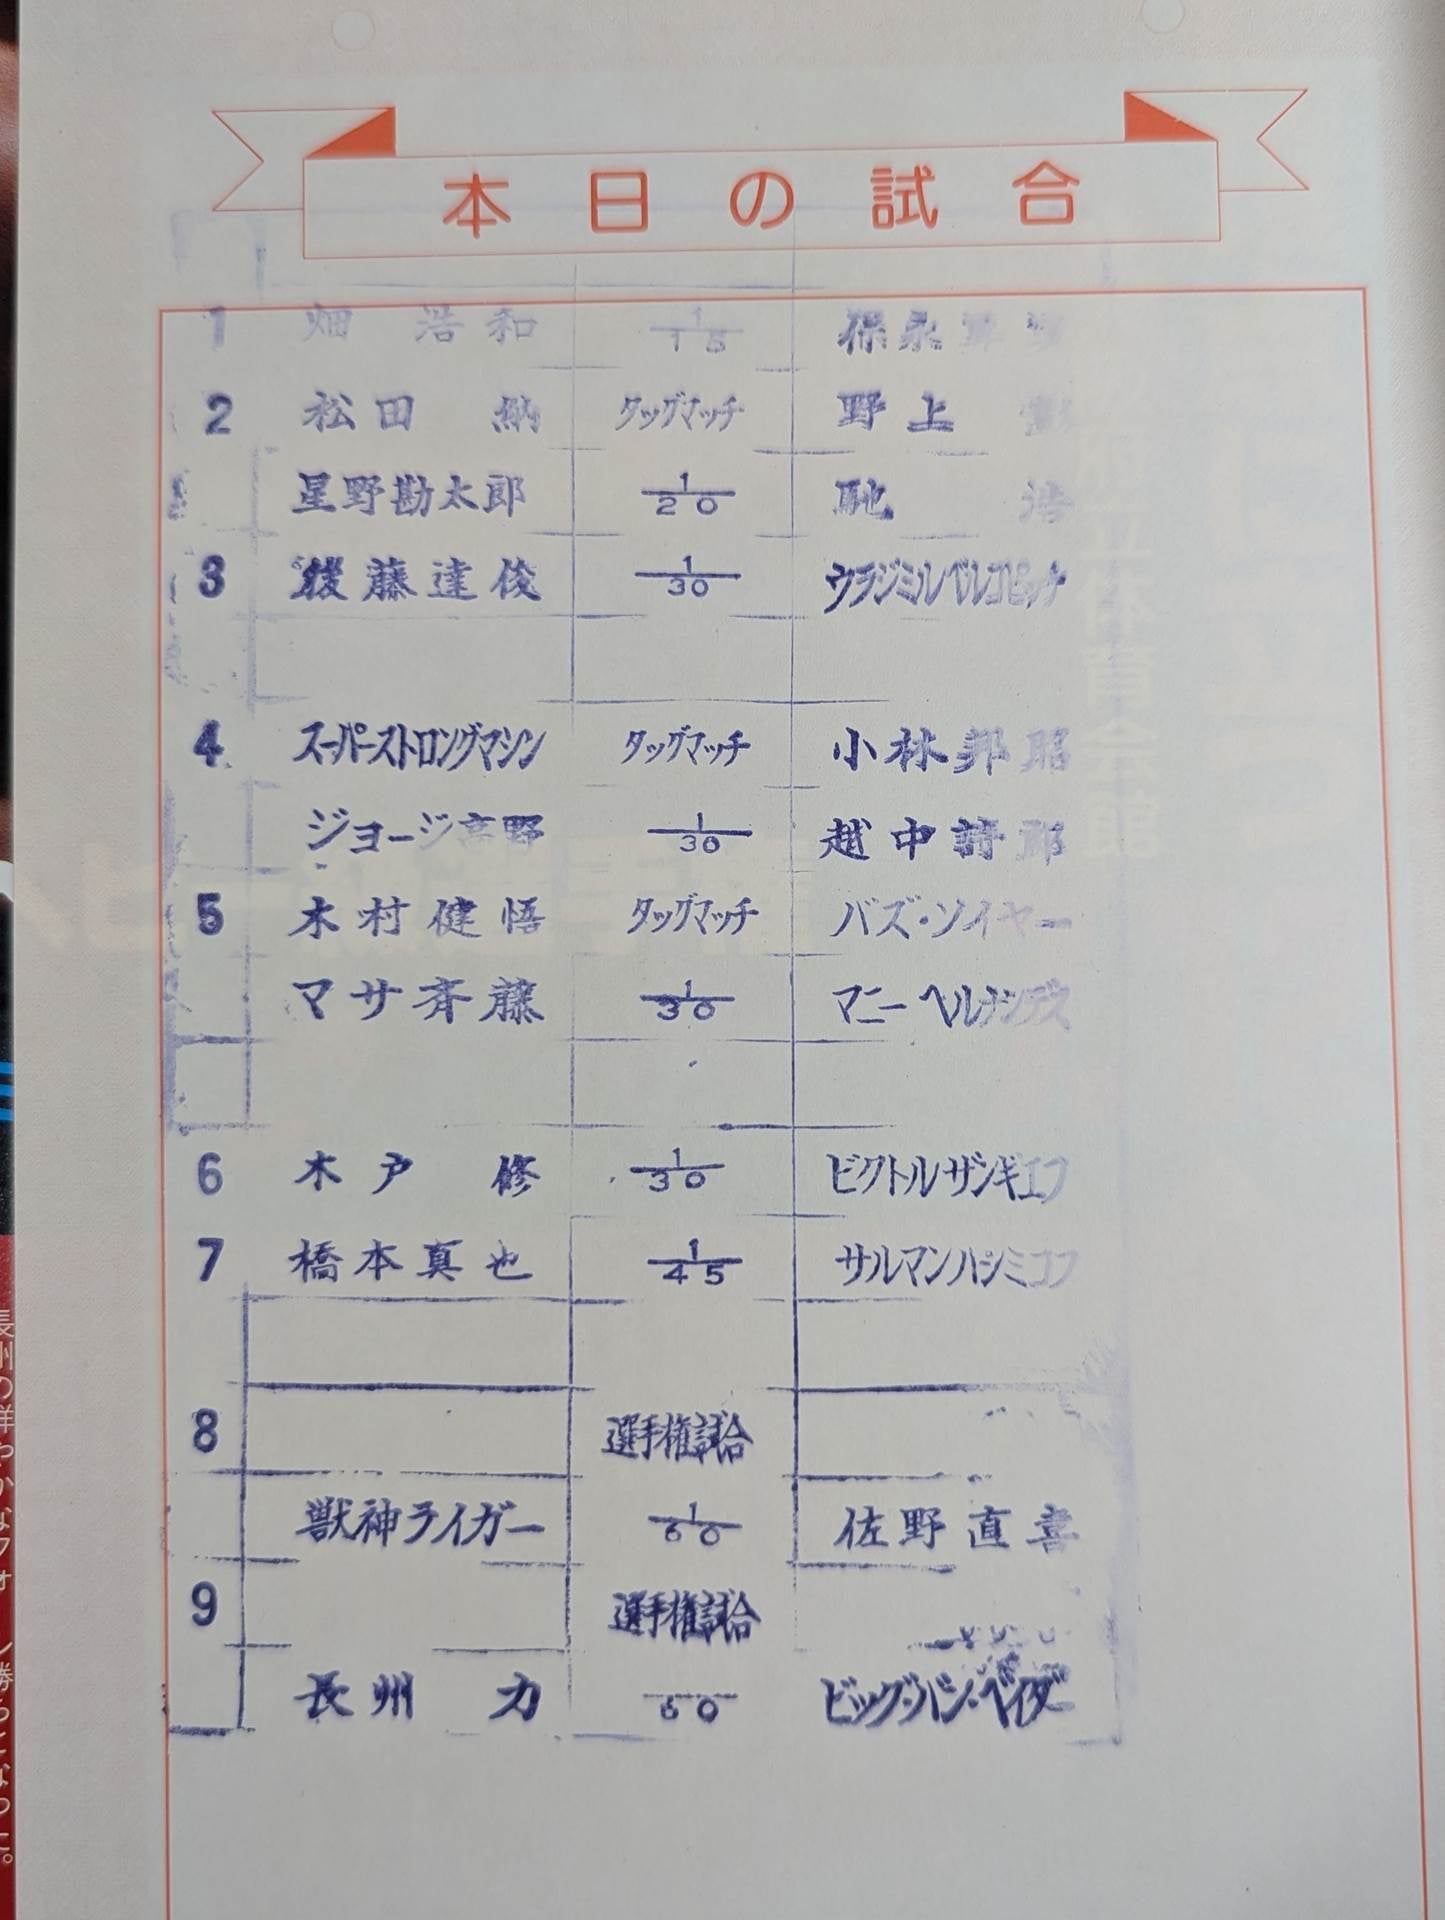 本日の試合
1 畑 浩和 1/15 保永昇
2 松田 納 タッグマッチ 野上
星野勘太郎 1/20 馳 浩
3 後藤達俊 1/30 ウラジミルベルコビッチ
4 スーパーストロングマシン タッグマッチ 小林邦昭
ジョージ高野 1/30 越中詩郎
5 木村健悟 タッグマッチ バズ・ソイヤー
マサ斉藤 1/30 マニーヘルナンデス
6 木戸 修 1/30 ビクトルザンギエフ
7 橋本真也 1/45 サルマンハシミコフ
8 選手権試合
獣神ライガー 1/60 佐野直喜
9 選手権試合
長州 力 60 ビッグ・バン・ベイダー